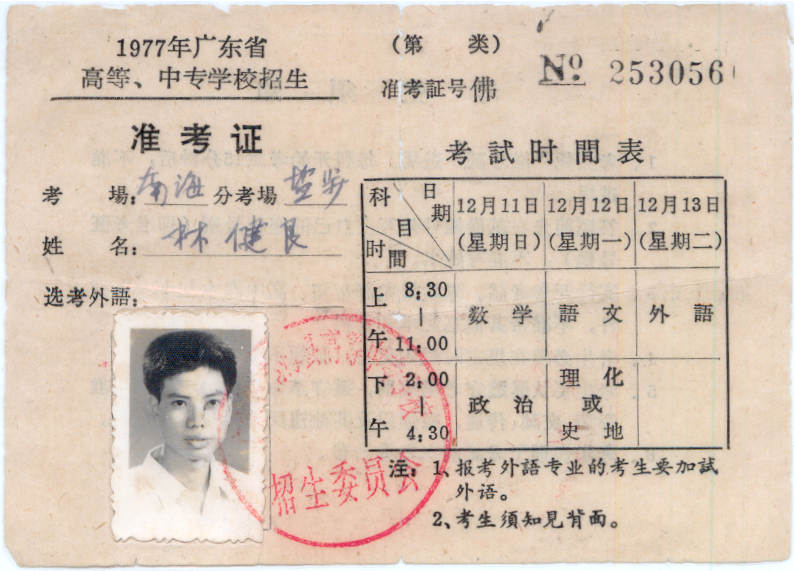 1977年广东省
高等、中专学校招生
准考证
考　　場：南海 分考場 盐步
姓　　名：林健良
选考外語：
（第　　类）
准考証号佛 № 253056
考試时間表
科目 日期 时間
12月11日（星期日） 12月12日（星期一） 12月13日（星期二）
上午 8:30—11:00 数学 語文 外語
下午 2:00—4:30 政治 理化或史地
注：1、报考外語专业的考生要加試
外语。
2、考生須知見背面。
招生委员会